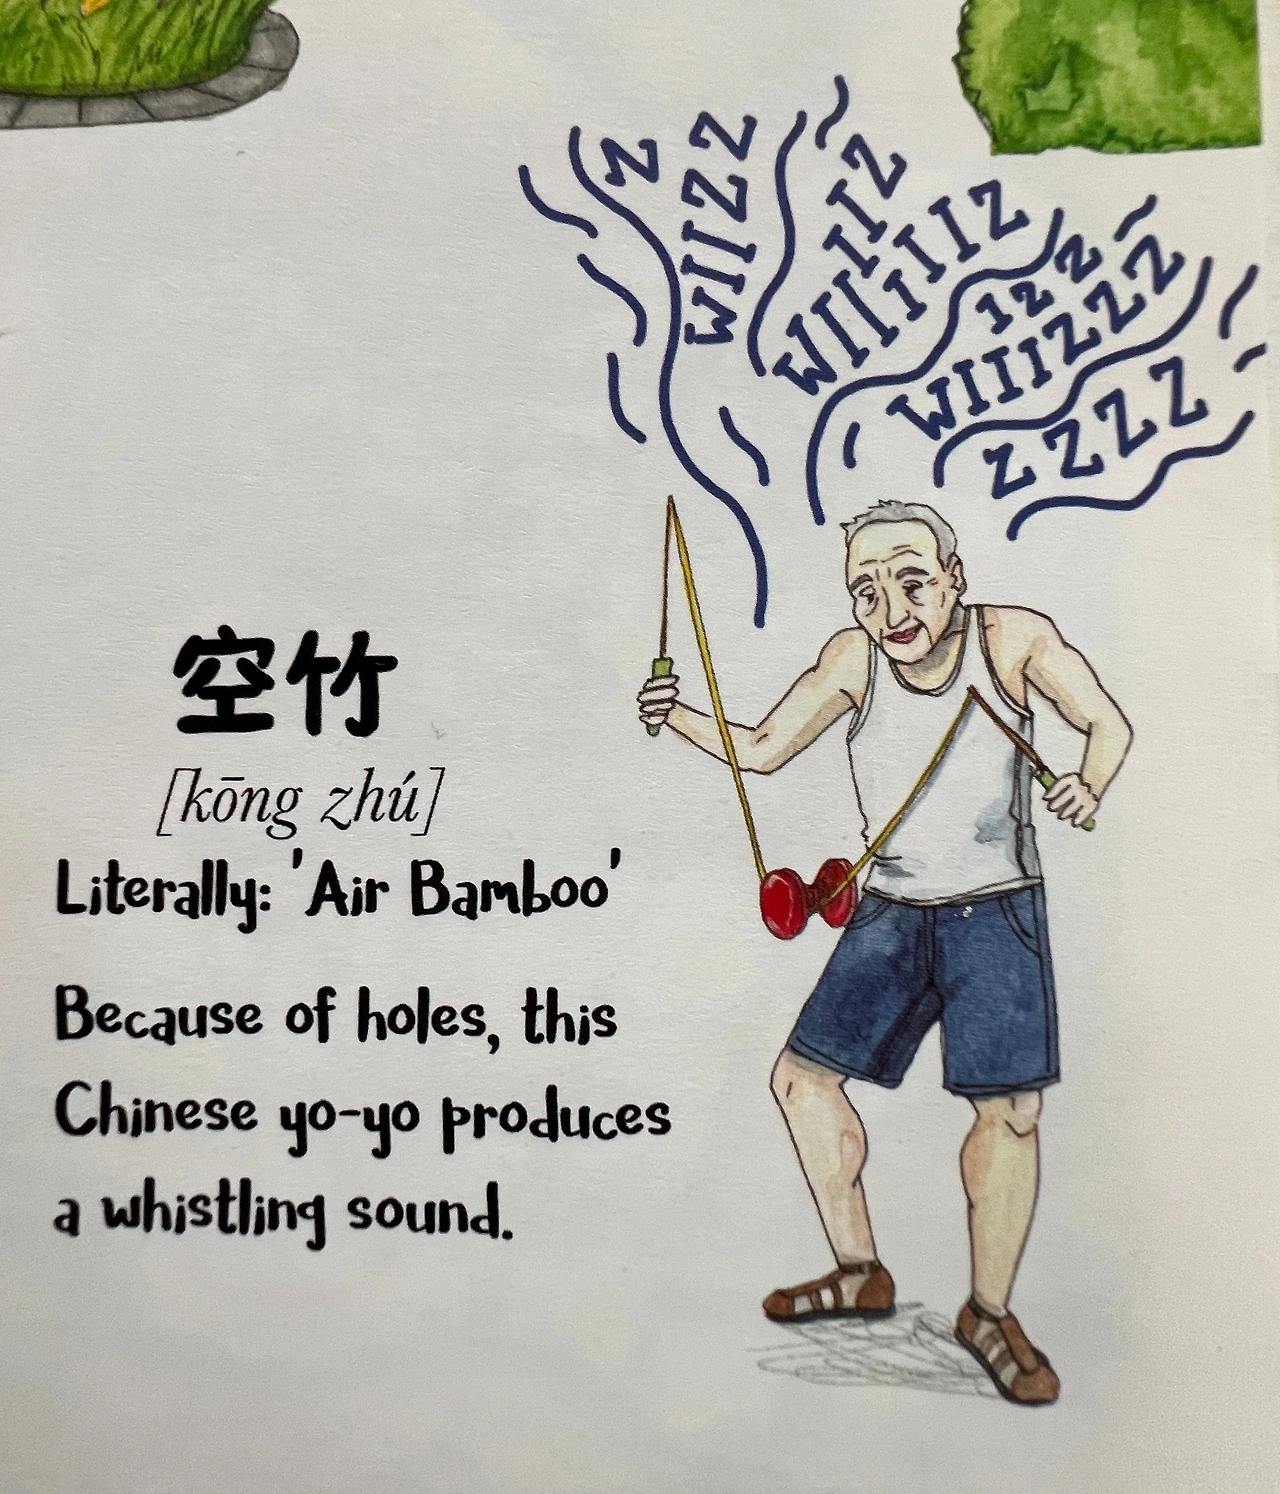 Z
WIIZZ
WIIIIZ
IIIIZ
IZZ
WIIIZZZ
ZZZZ
空竹
[kōng zhú]
Literally: 'Air Bamboo'
Because of holes, this
Chinese yo-yo produces
a whistling sound.